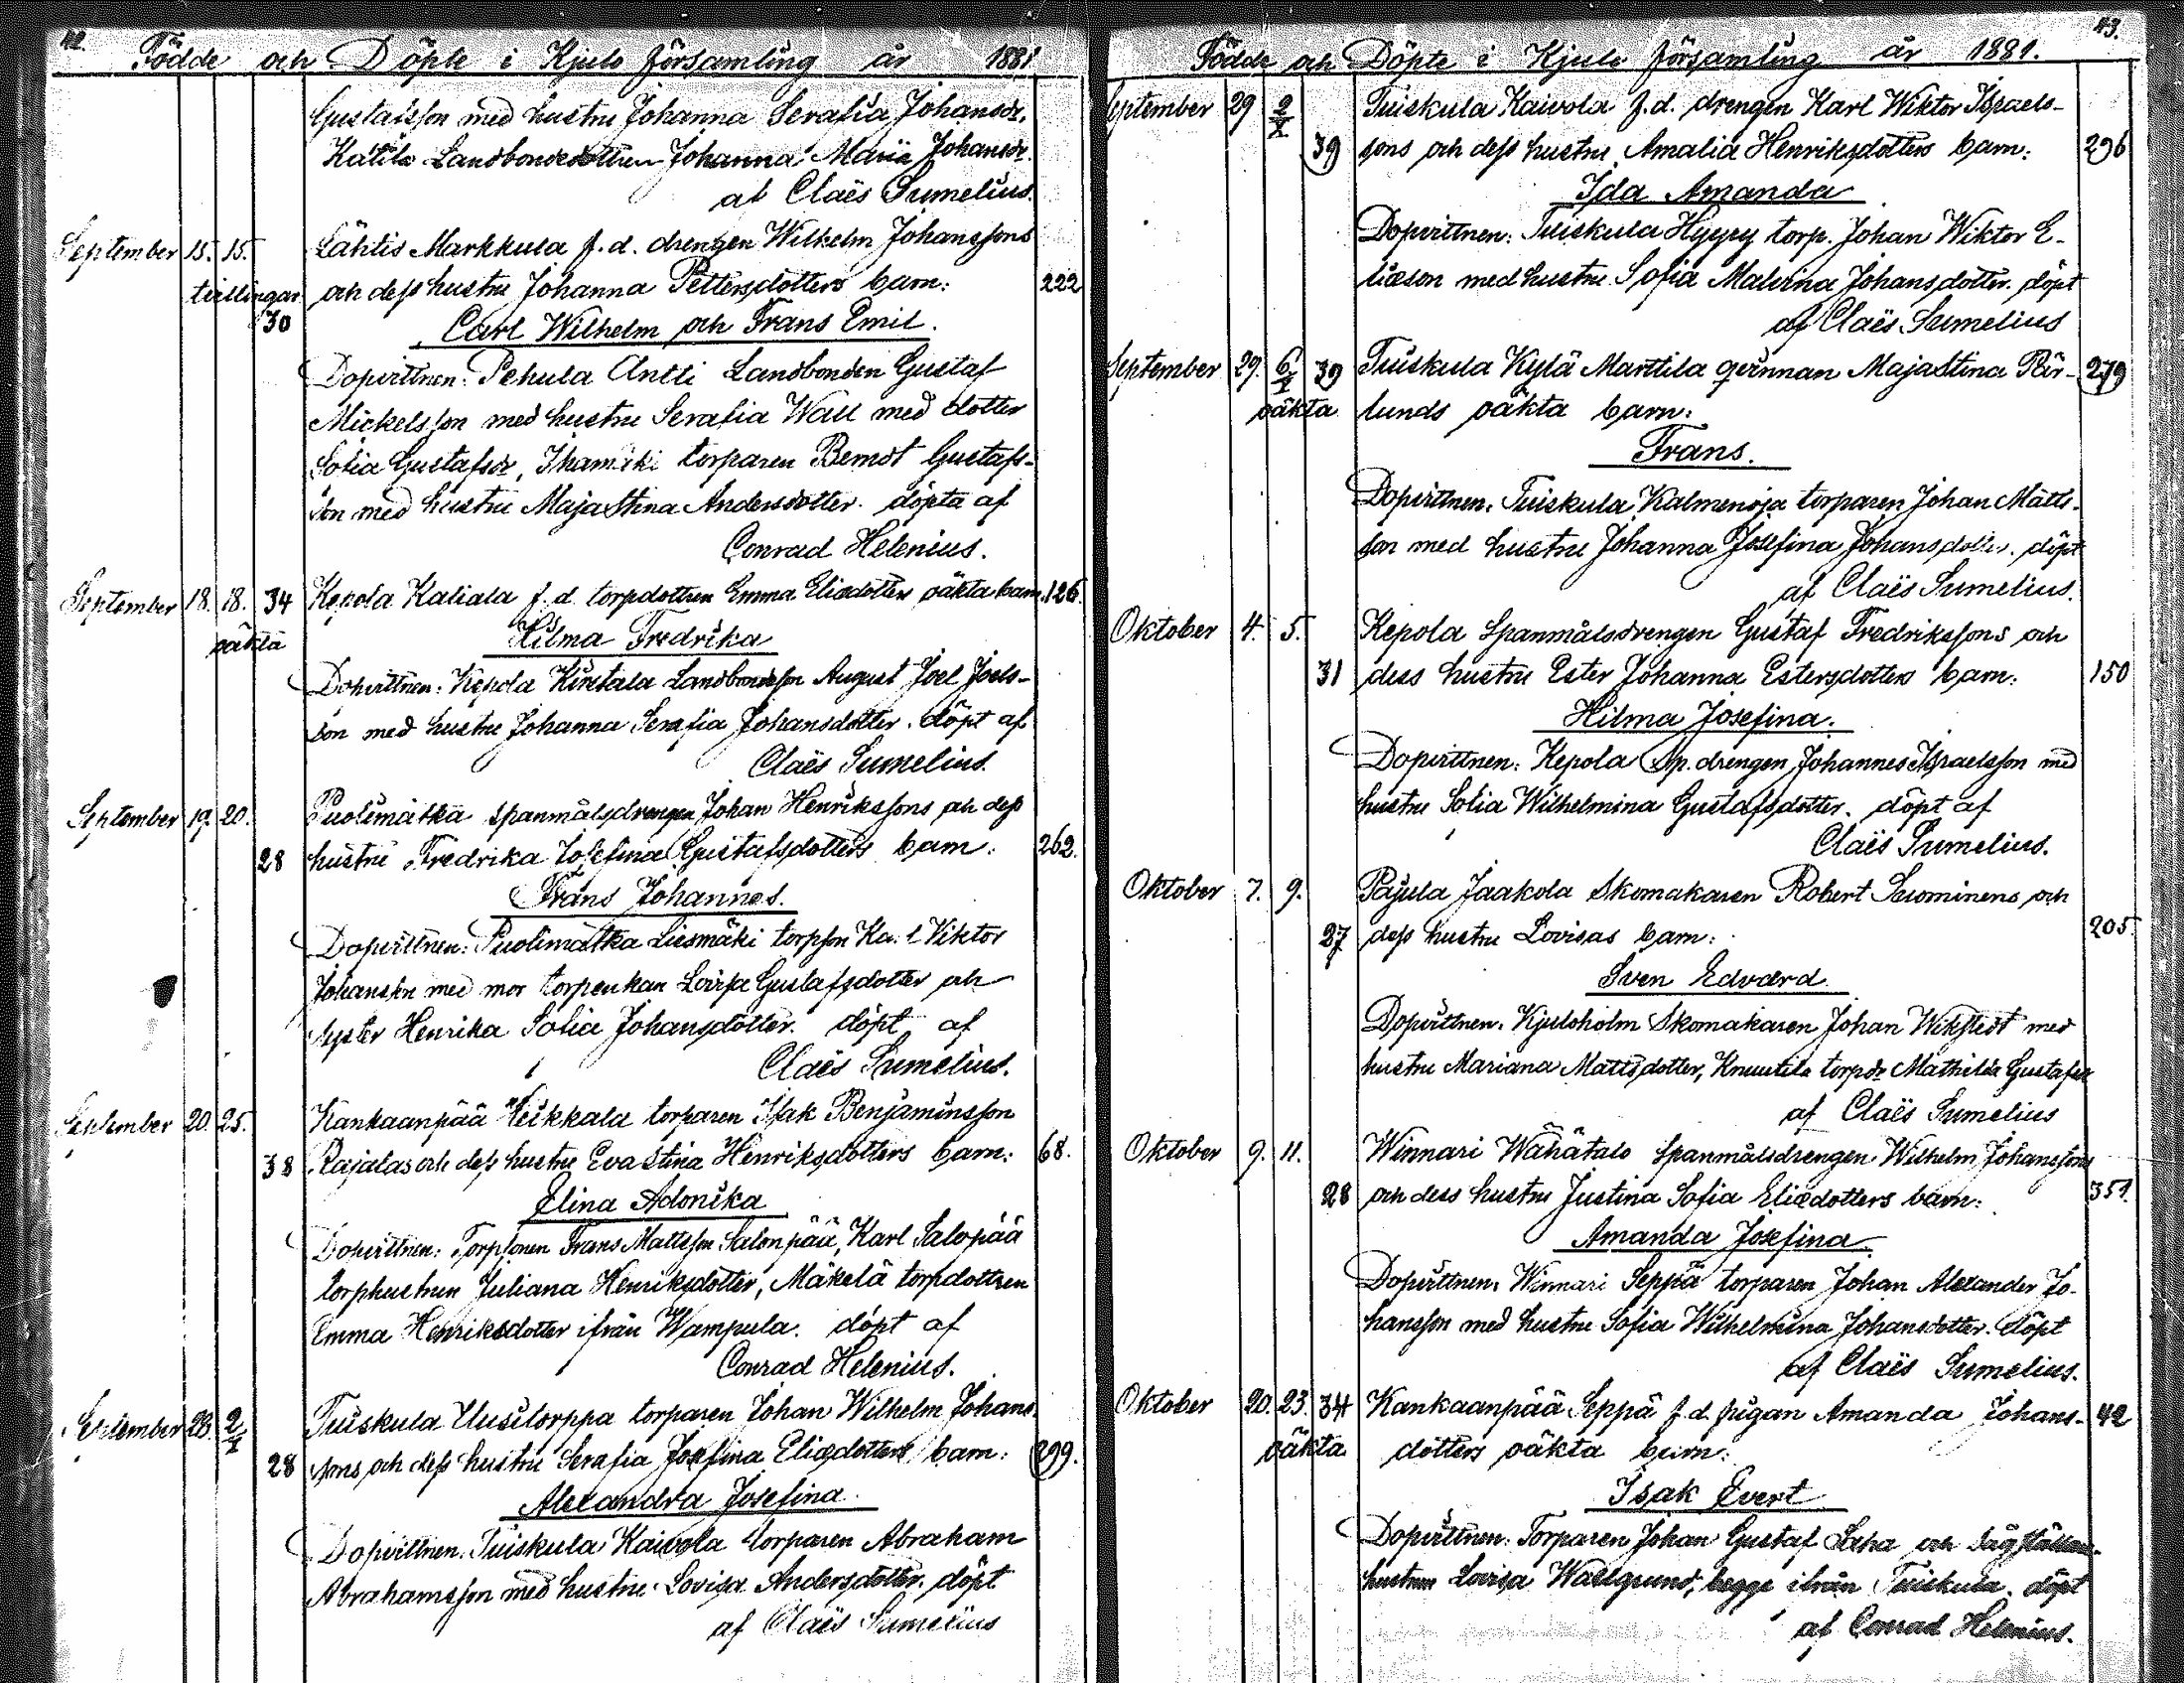 42.
Födde och Döpte i Kjulo församling år 1881
Gustafsson med hustru Johanna Serafia Johansdr,
Katila Landbondedottren Johanna Maria Johansdr.
af Claës Sumelius.
September 15. 15. Lähtis Markkula f.d. drengen Wilhelm Johanssons
tvillingar och dess hustru Johanna Pettersdotters barn: 222
30 Carl Wilhelm och Frans Emil.
Dopvittnen: Pehula Antti Landbonden Gustaf
Mickelsson med hustru Serafia Wall med dotter
Sofia Gustafsdr, Ihamäki torparen Berndt Gustafs-
son med hustru Maja Stina Andersdotter. döpta af
Conrad Helenius.
September 18. 18. 34 Kepola Kaliala f.d. torpdottren Emma Eliædotters oäkta barn. 126.
oäkta Hilma Fredrika
Dopvittnen: Kepola Kintala Landbondeson August Joel Joels-
son med hustru Johanna Serafia Johansdotter. döpt af
Claës Sumelius.
September 19. 20. Puolimatka spanmålsdrengen Johan Henrikssons och dess
28 hustru Fredrika Josefina Gustafsdotters barn: 262.
Frans Johannes.
Dopvittnen: Puolimatka Liesmäki torpson Karl Viktor
Johansson med mor torpenkan Lovisa Gustafsdotter och
syster Henrika Sofia Johansdotter. döpt af
Claës Sumelius.
September 20. 25. Kankaanpää Heikkala torparen Isak Benjaminsson
38 Rajalas och dess hustru Eva Stina Henriksdotters barn: 68.
Elina Adonika
Dopvittnen: Torpsonen Frans Mattsson Salonpää, Karl Salopää
torphustrun Juliana Henriksdotter, Mäkelä torpdottren
Emma Henriksdotter ifrån Wampula. döpt af
Conrad Helenius.
September 28. 2/X Tuiskula Uusitorppa torparen Johan Wilhelm Johans-
28 sons och dess hustru Serafia Josefina Eliædotters barn: 299.
Alexandra Josefina
Dopvittnen: Tuiskula Kaivola torparen Abraham
Abrahamsson med hustru Lovisa Andersdotter. döpt
af Claës Sumelius
43.
Födde och Döpte i Kjulo församling år 1881.
September 29 2/X Tuiskula Kaivola f.d. drengen Karl Wiktor Israels-
39 sons och dess hustru Amalia Henriksdotters barn: 296
Ida Amanda
Dopvittnen: Tuiskula Hyypy torp. Johan Wiktor E-
liæson med hustru Sofia Malvina Johansdotter. döpt
af Claës Sumelius
September 29. 6/X 39 Tuiskula Kylä Marttila qvinnan Maja Stina Pär- 279
oäkta lunds oäkta barn:
Frans.
Dopvittnen: Tuiskula Kalmenoja torparen Johan Matts-
son med hustru Johanna Josefina Johansdotter. döpt
af Claës Sumelius.
Oktober 4. 5. Kepola Spanmålsdrengen Gustaf Fredrikssons och
31 dess hustru Ester Johanna Estersdotters barn: 150
Hilma Josefina.
Dopvittnen: Kepola Sp. drengen Johannes Israelsson med
hustru Sofia Wilhelmina Gustafsdotter. döpt af
Claës Sumelius.
Oktober 7. 9. Pajula Jaakola Skomakaren Robert Suominens och
27 dess hustru Lovisas barn: 205.
Sven Edvard
Dopvittnen: Kjuloholm Skomakaren Johan Wikstedt med
hustru Mariana Mattsdotter, Knuutila torpdr Mathilda Gustafsdr
af Claës Sumelius
Oktober 9. 11. Winnari Wähätalo Spanmålsdrengen Wilhelm Johanssons
28 och dess hustru Justina Sofia Eliædotters barn: 351.
Amanda Josefina
Dopvittnen: Winnari Seppä torparen Johan Alexander Jo-
hansson med hustru Sofia Wilhelmina Johansdotter. döpt
af Claës Sumelius.
Oktober 20. 23. 34 Kankaanpää Seppä f.d. pigan Amanda Johans- 42
oäkta dotters oäkta barn:
Isak Evert
Dopvittnen: Torparen Johan Gustaf Saha och
hustrun Lovisa Wallgrund, begge ifrån Tuiskula. döpt
af Conrad Helenius.